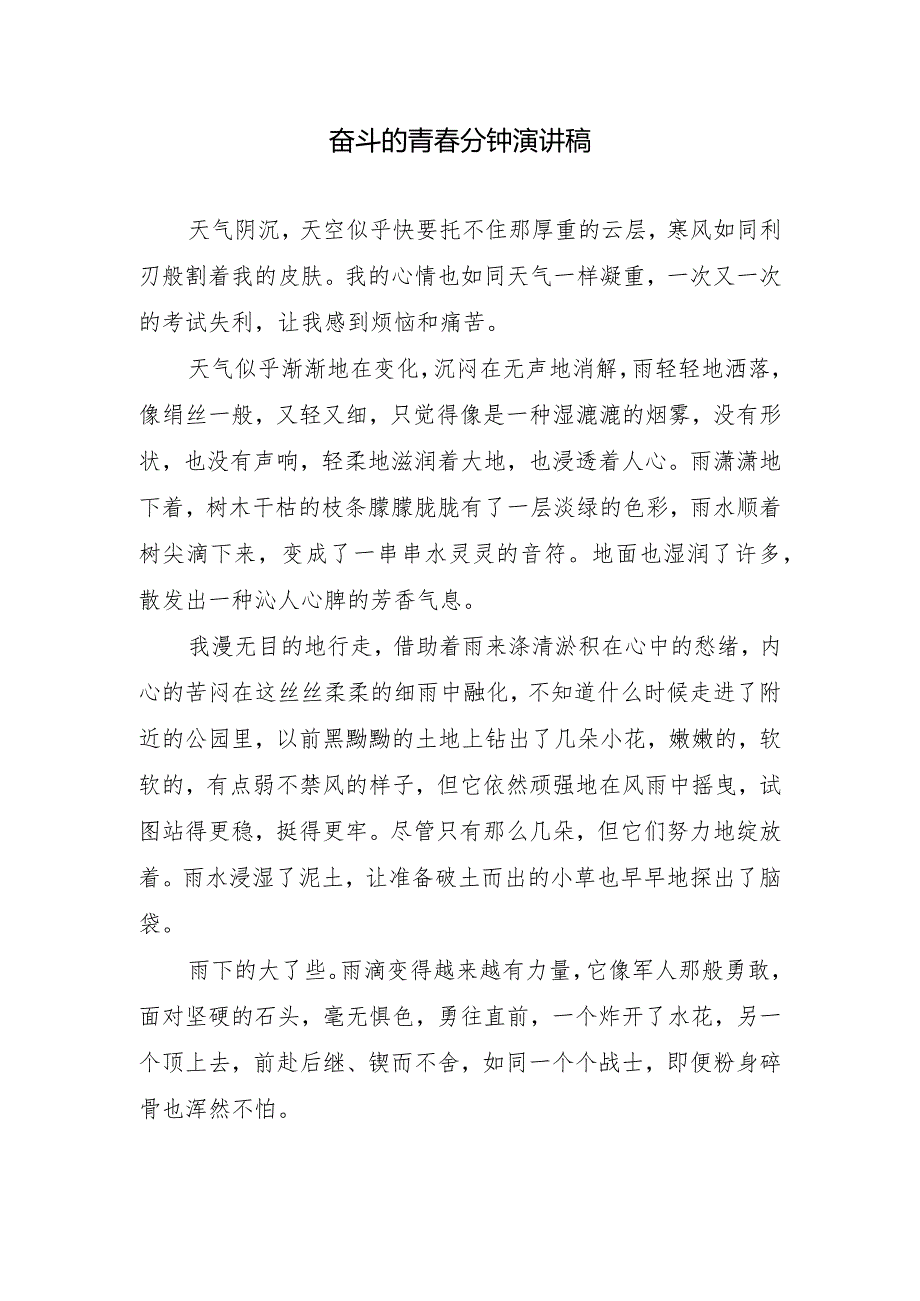 奋斗的青春分钟演讲稿
天气阴沉，天空似乎快要托不住那厚重的云层，寒风如同利
刃般割着我的皮肤。我的心情也如同天气一样凝重，一次又一次
的考试失利，让我感到烦恼和痛苦。
天气似乎渐渐地在变化，沉闷在无声地消解，雨轻轻地洒落，
像绢丝一般，又轻又细，只觉得像是一种湿漉漉的烟雾，没有形
状，也没有声响，轻柔地滋润着大地，也浸透着人心。雨潇潇地
下着，树木干枯的枝条朦朦胧胧有了一层淡绿的色彩，雨水顺着
树尖滴下来，变成了一串串水灵灵的音符。地面也湿润了许多，
散发出一种沁人心脾的芳香气息。
我漫无目的地行走，借助着雨来涤清淤积在心中的愁绪，内
心的苦闷在这丝丝柔柔的细雨中融化，不知道什么时候走进了附
近的公园里，以前黑黝黝的土地上钻出了几朵小花，嫩嫩的，软
软的，有点弱不禁风的样子，但它依然顽强地在风雨中摇曳，试
图站得更稳，挺得更牢。尽管只有那么几朵，但它们努力地绽放
着。雨水浸湿了泥土，让准备破土而出的小草也早早地探出了脑
袋。
雨下的大了些。雨滴变得越来越有力量，它像军人那般勇敢，
面对坚硬的石头，毫无惧色，勇往直前，一个炸开了水花，另一
个顶上去，前赴后继、锲而不舍，如同一个个战士，即便粉身碎
骨也浑然不怕。